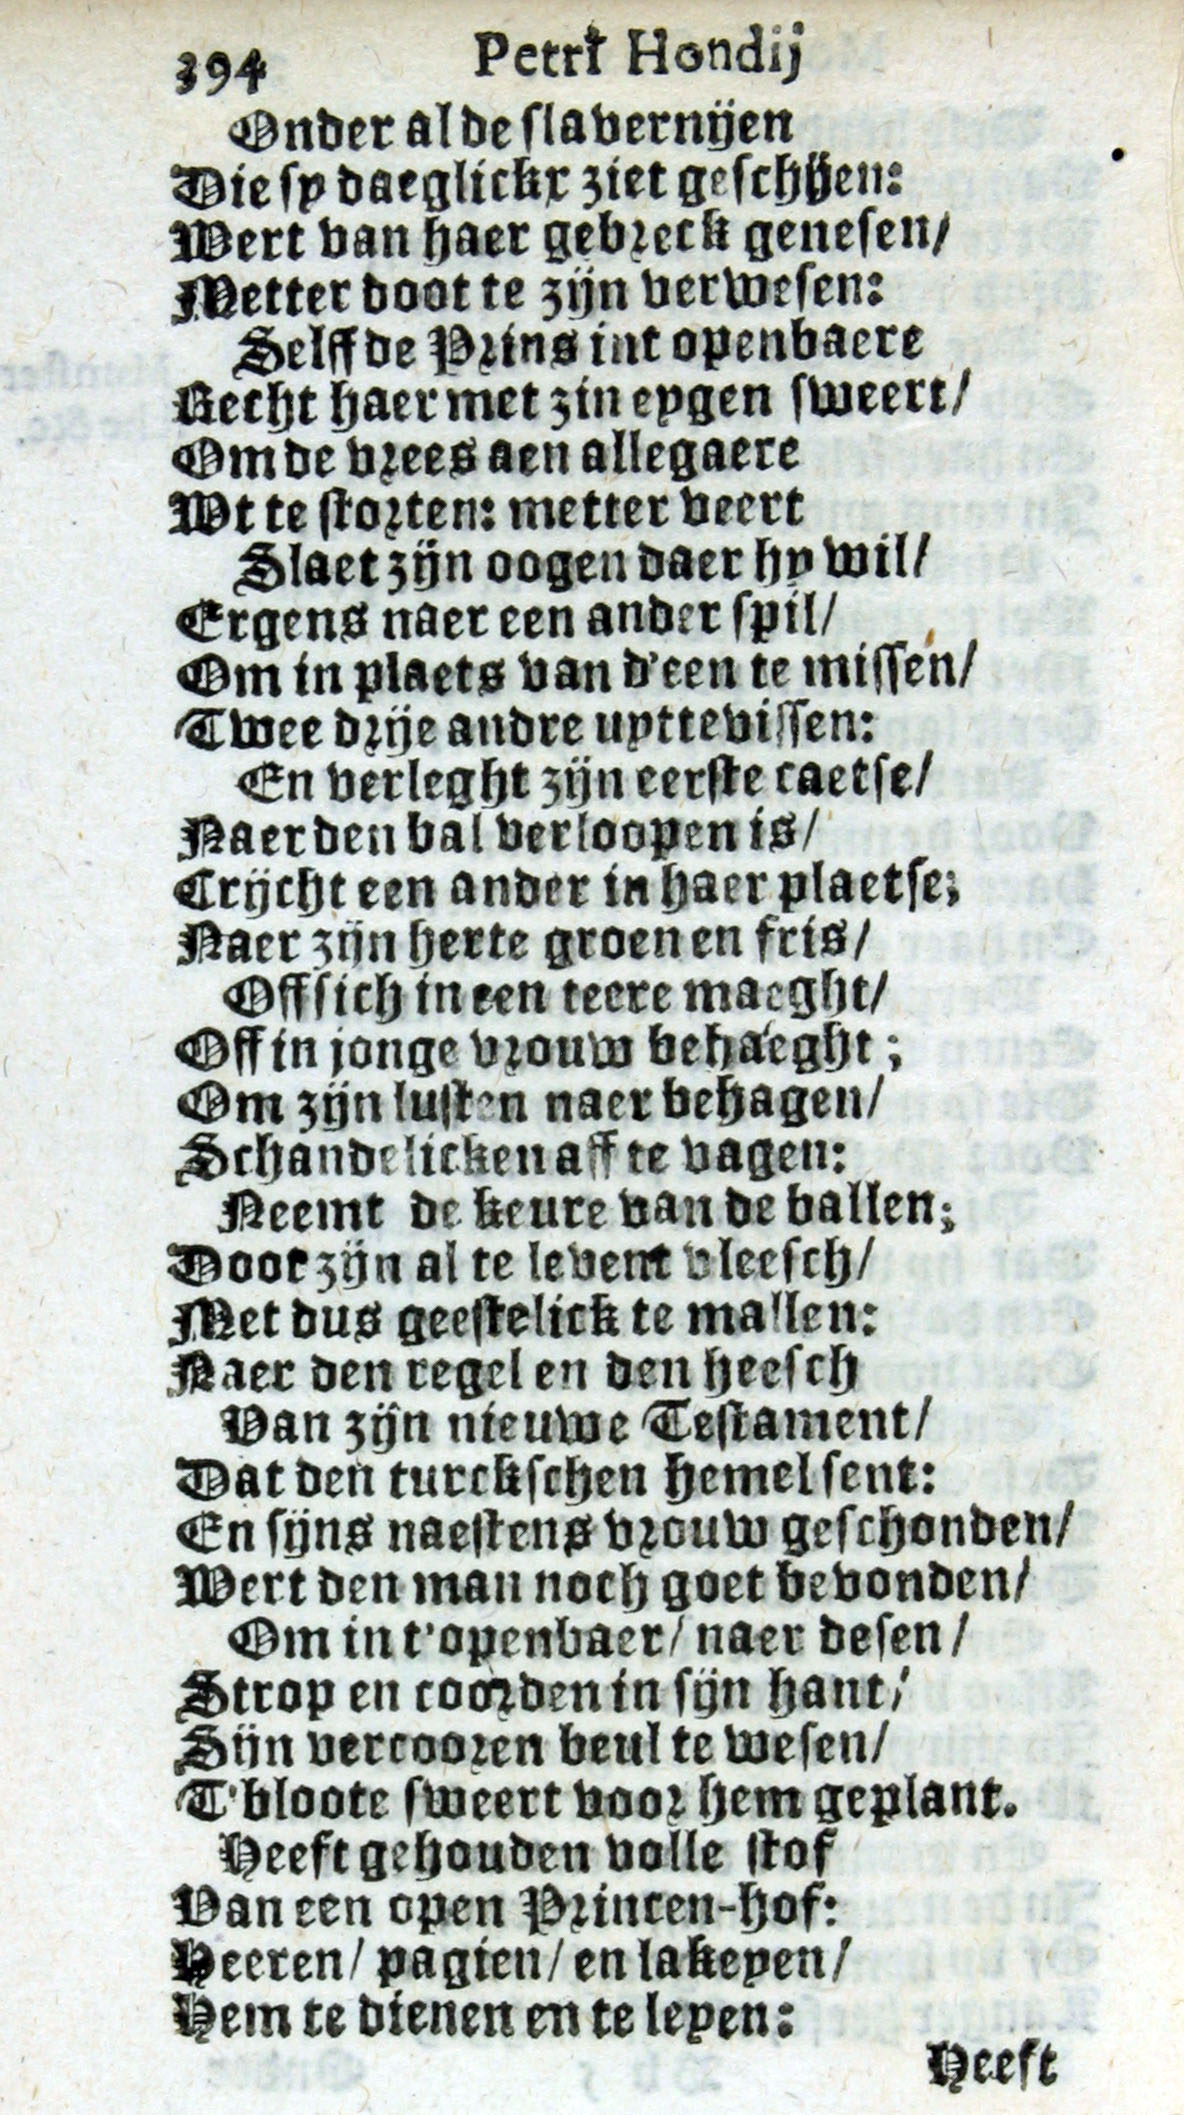 394 Petri Hondij
Onder al de slavernijen
Die sy daeglickx ziet geschijen:
Wert van haer gebreck genesen/
Metter doot te zijn verwesen:
Selff de Prins int openbaere
Recht haer met zin eygen sweert/
Om de vrees aen allegaere
Wt te storten: metter veert
Slaet zijn oogen daer hy wil/
Ergens naer een ander spil/
Om in plaets van d'een te missen/
Twee drije andre uyttevissen:
En verleght zijn eerste caetse/
Naer den bal verloopen is/
Crijcht een ander in haer plaetse;
Naer zijn herte groen en fris/
Off sich in een teere maeght/
Off in jonge vrouw behaeght;
Om zijn lusten naer behagen/
Schandelicken aff te vagen:
Neemt de keure van de ballen;
Door zijn al te levent vleesch/
Met dus geestelick te mallen:
Naer den regel en den heesch
Van zijn nieuwe Testament/
Dat den turckschen hemel sent:
En sijns naestens vrouw geschonden/
Wert den man noch goet bevonden/
Om in t'openbaer/ naer desen/
Strop en coorden in sijn hant/
Sijn vercooren beul te wesen/
T'bloote sweert voor hem geplant.
Heeft gehouden volle stof
Van een open Princen-hof:
Heeren/ pagien/ en lakeyen/
Hem te dienen en te leyen:
Heeft